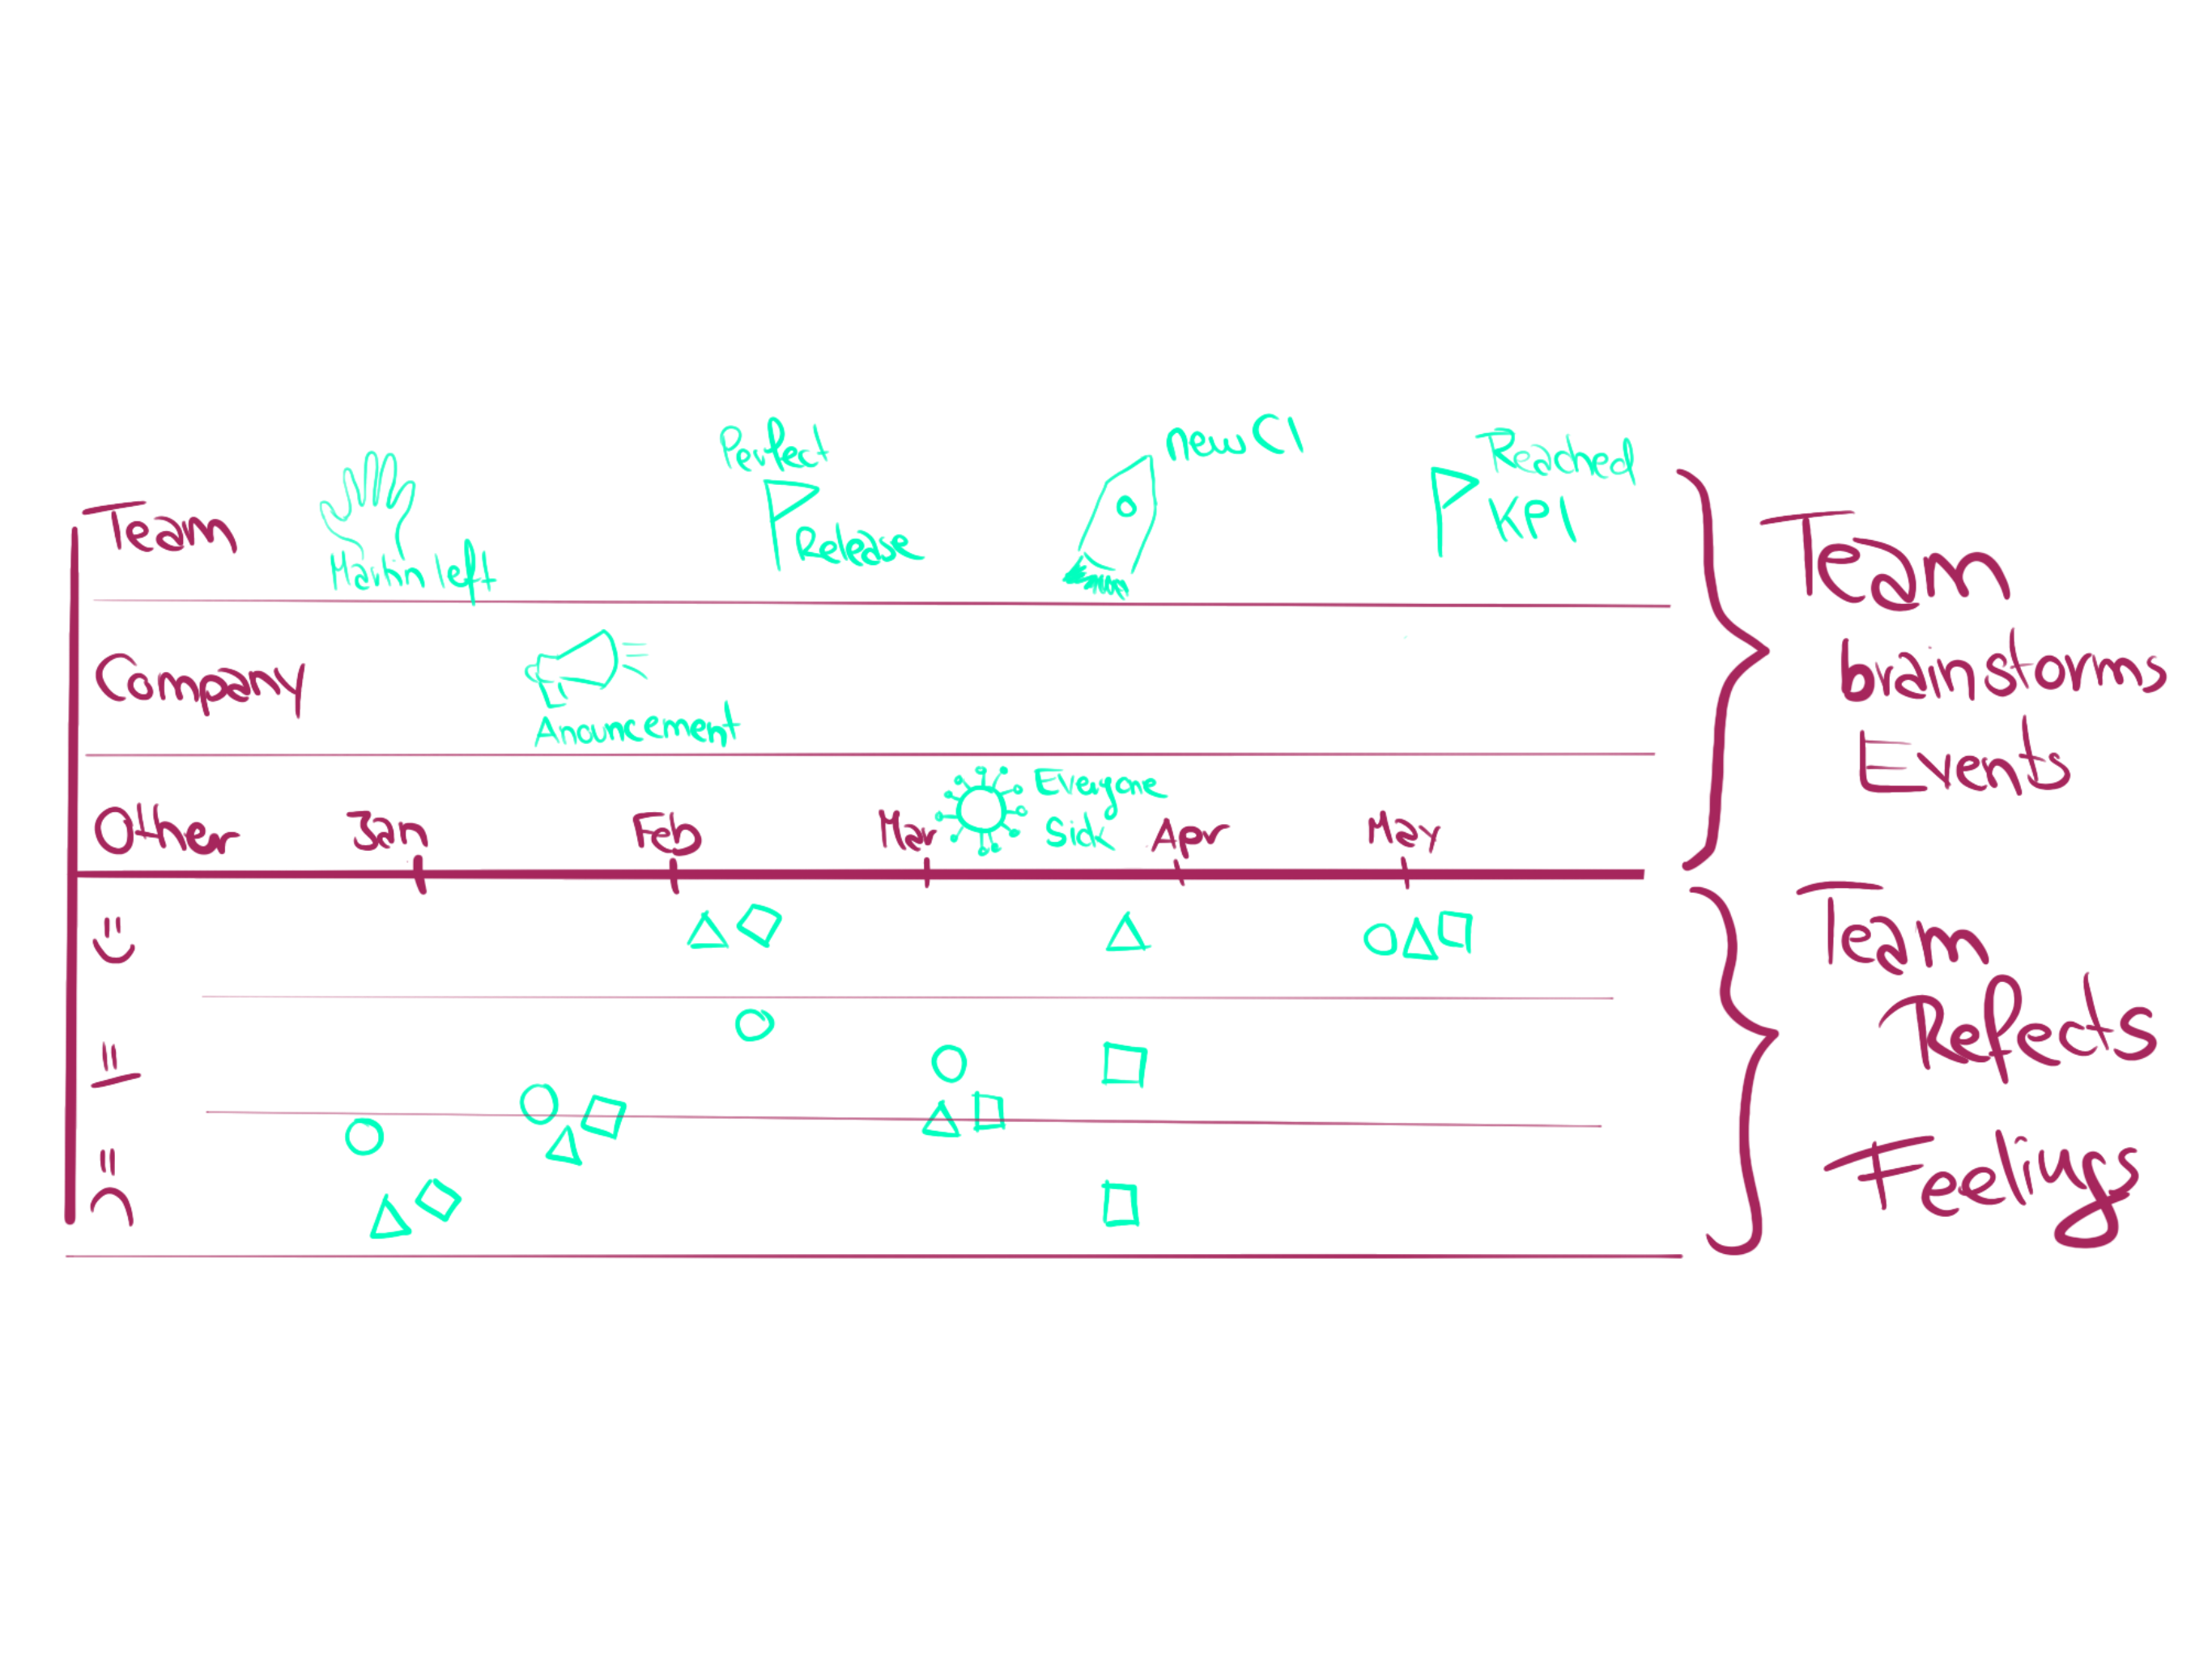 Team
left
Perfect
Release
new CI
Reached
KPI
Company
Anouncement
Other
Jan
Feb
Mar
Everyone
Sick
Apr
May
Team
brainstorms
Events
Team
Refects
Feelings